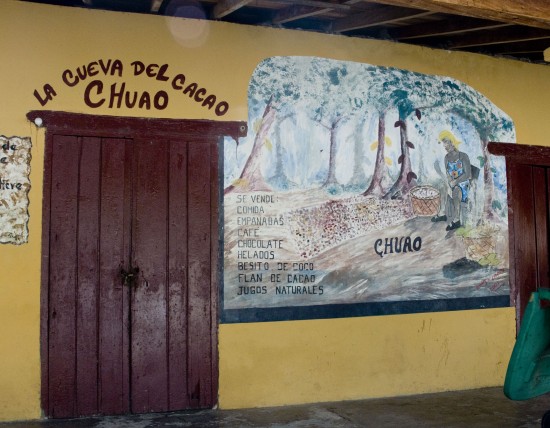 LA CUEVA DEL CACAO
CHUAO
de
e
SE VENDE:
COMIDA
EMPANADAS
CAFE
CHOCOLATE
HELADOS
BESITO DE COCO
FLAN DE CACAO
JUGOS NATURALES
CHUAO